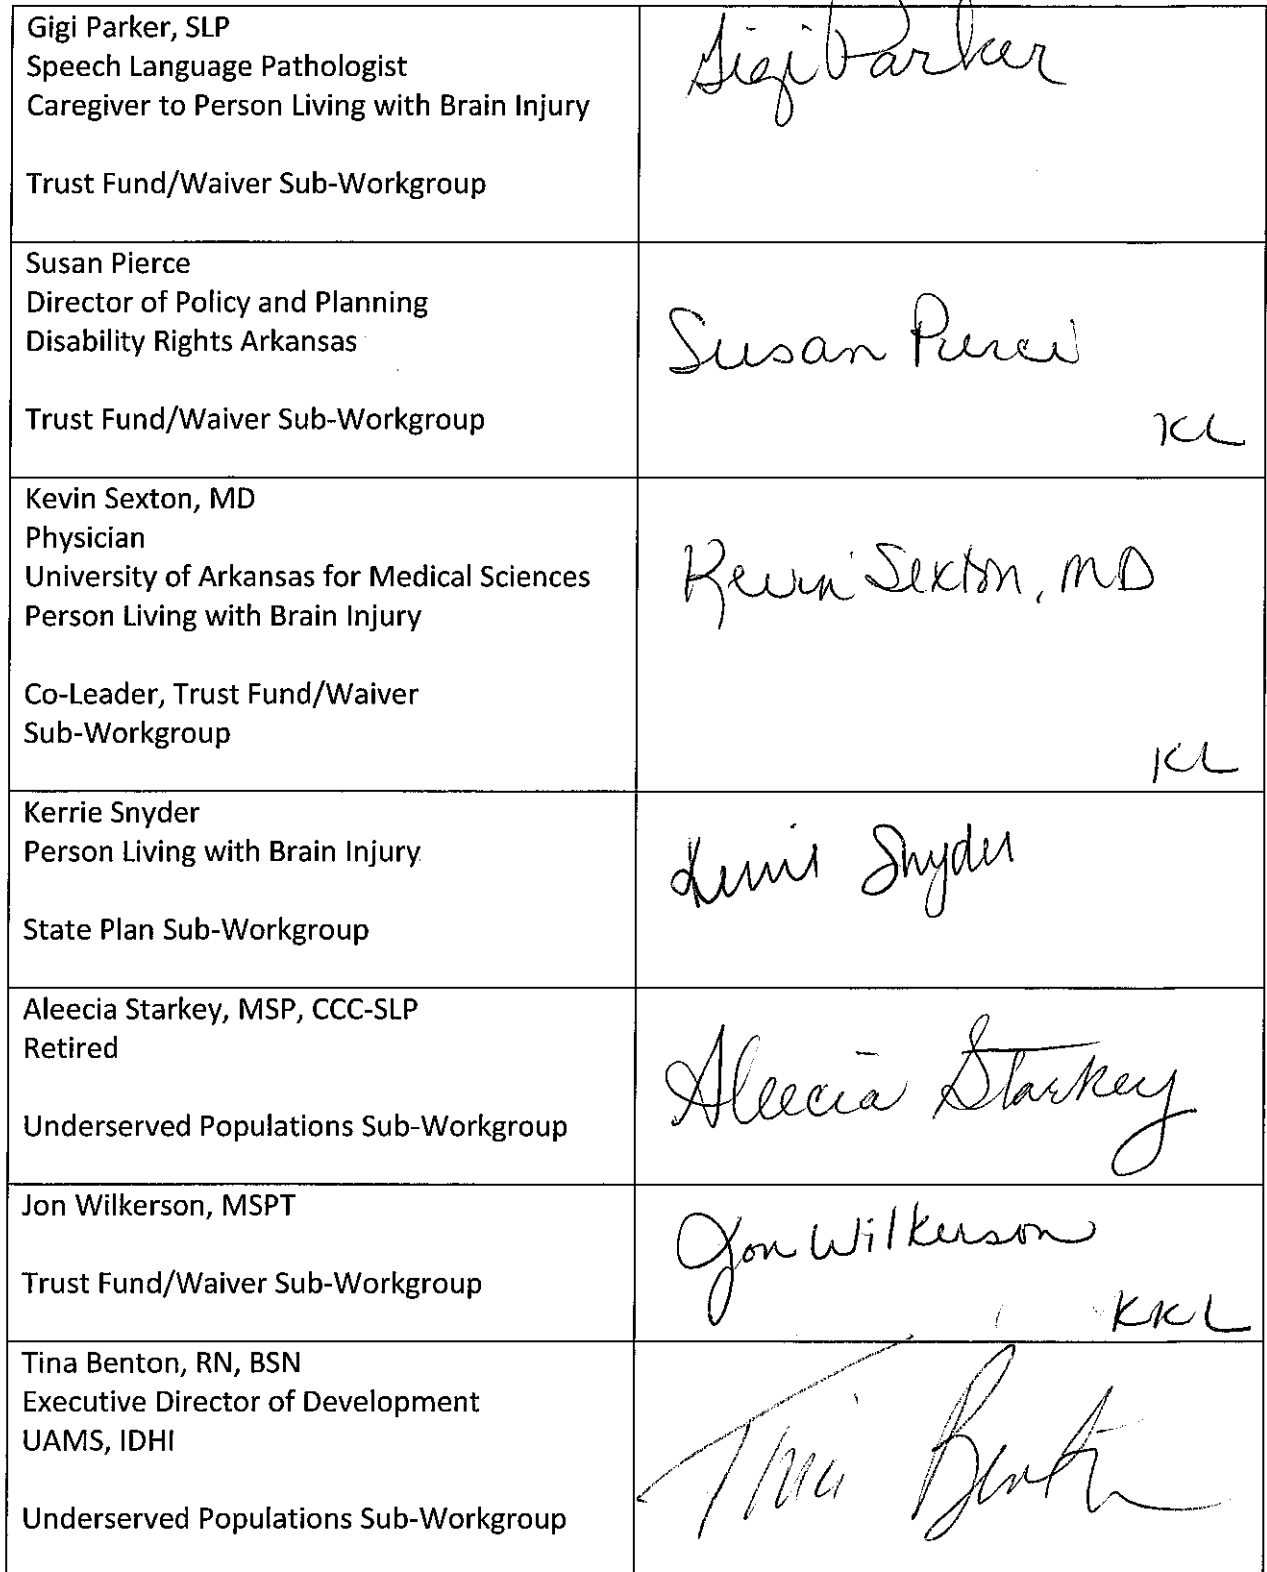 Gigi Parker, SLP
Speech Language Pathologist
Caregiver to Person Living with Brain Injury
Trust Fund/Waiver Sub-Workgroup
Gigi Parker
Susan Pierce
Director of Policy and Planning
Disability Rights Arkansas
Trust Fund/Waiver Sub-Workgroup
Susan Pierce
KL
Kevin Sexton, MD
Physician
University of Arkansas for Medical Sciences
Person Living with Brain Injury
Co-Leader, Trust Fund/Waiver
Sub-Workgroup
Kevin Sexton, MD
KL
Kerrie Snyder
Person Living with Brain Injury
State Plan Sub-Workgroup
Kerrie Snyder
Aleecia Starkey, MSP, CCC-SLP
Retired
Underserved Populations Sub-Workgroup
Aleecia Starkey
Jon Wilkerson, MSPT
Trust Fund/Waiver Sub-Workgroup
Jon Wilkerson
KKL
Tina Benton, RN, BSN
Executive Director of Development
UAMS, IDHI
Underserved Populations Sub-Workgroup
Tina Benton